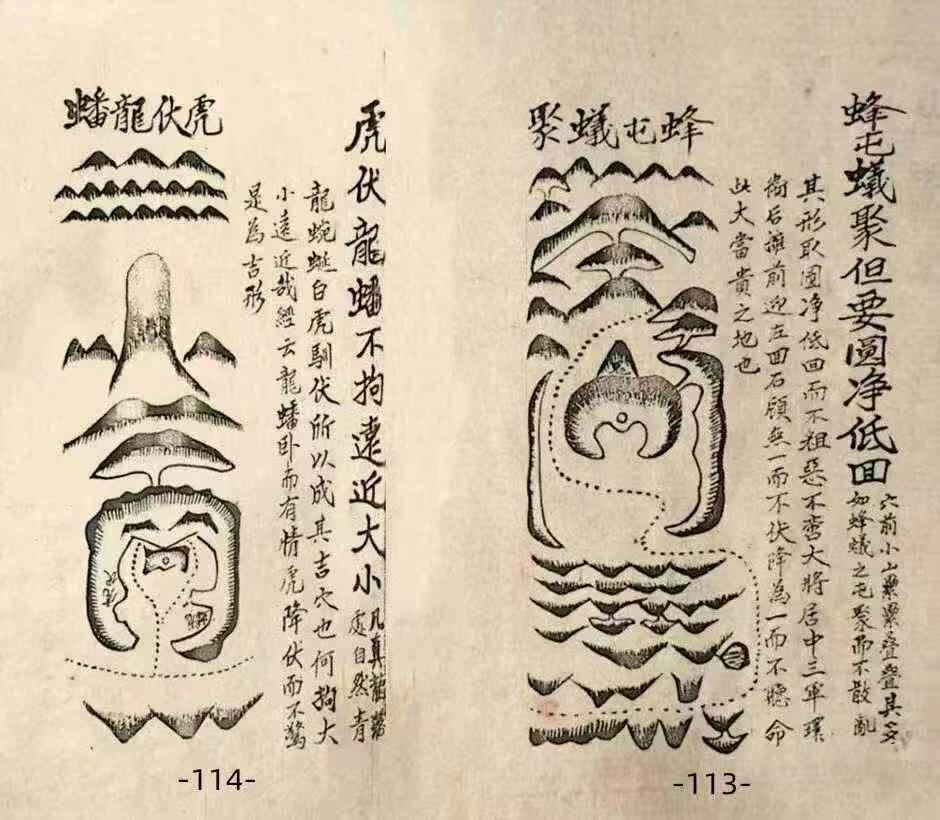 蜂屯蟻聚但要圓净低回
穴前小山累累疊疊其多
如蜂蟻之屯聚而不散亂
其形取圓净低回而不粗惡不蛮大將居中三軍環
衛后擁前迎左回右顧無一而不伏降為一而不聽命
此大當貴之地也
蜂屯蟻聚
-113-
虎伏龍蟠不拘遠近大小
凡真龍落
處自然青
龍蜿蜒白虎馴伏所以成其吉穴也何拘大
小遠近哉經云龍蟠卧而有情虎降伏而不驚
是為吉形
虎伏龍蟠
虎伏
-114-